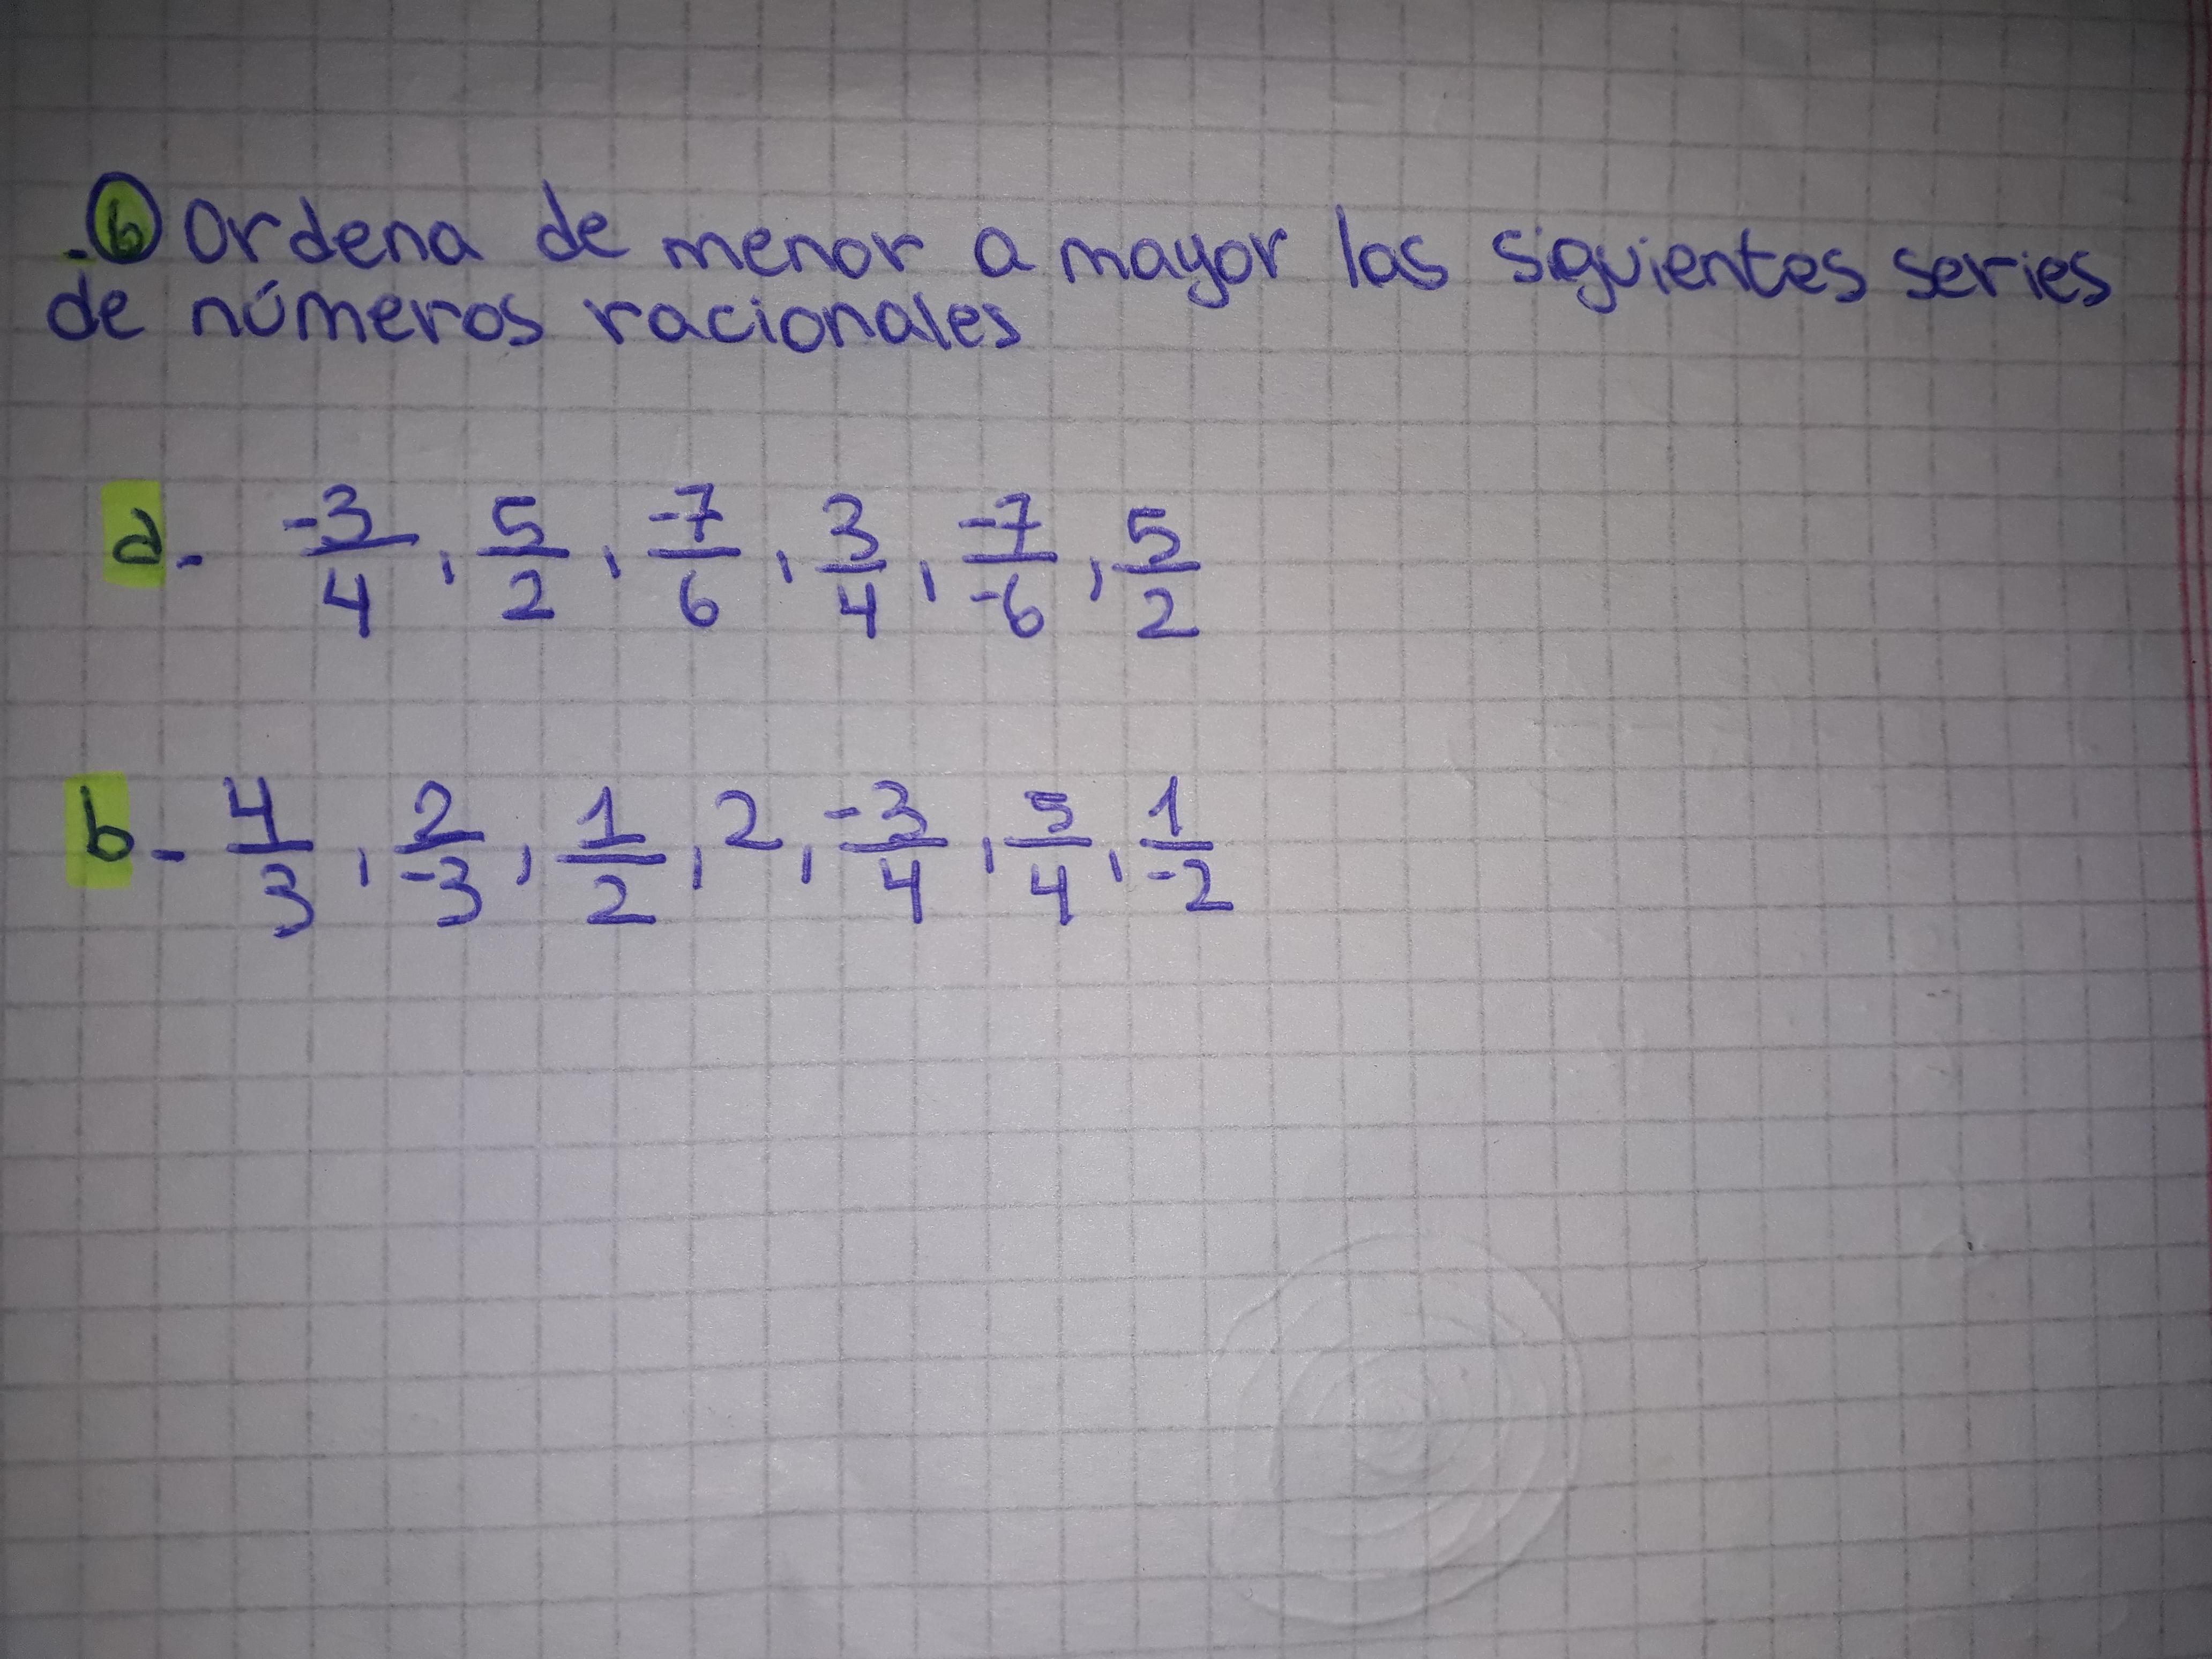 .6 Ordena de menor a mayor las siguientes series
de números racionales
a- -3/4, 5/2, -7/6, 3/4, -7/-6, 5/2
b- 4/3, 2/-3, 1/2, 2, -3/4, 5/4, 1/-2